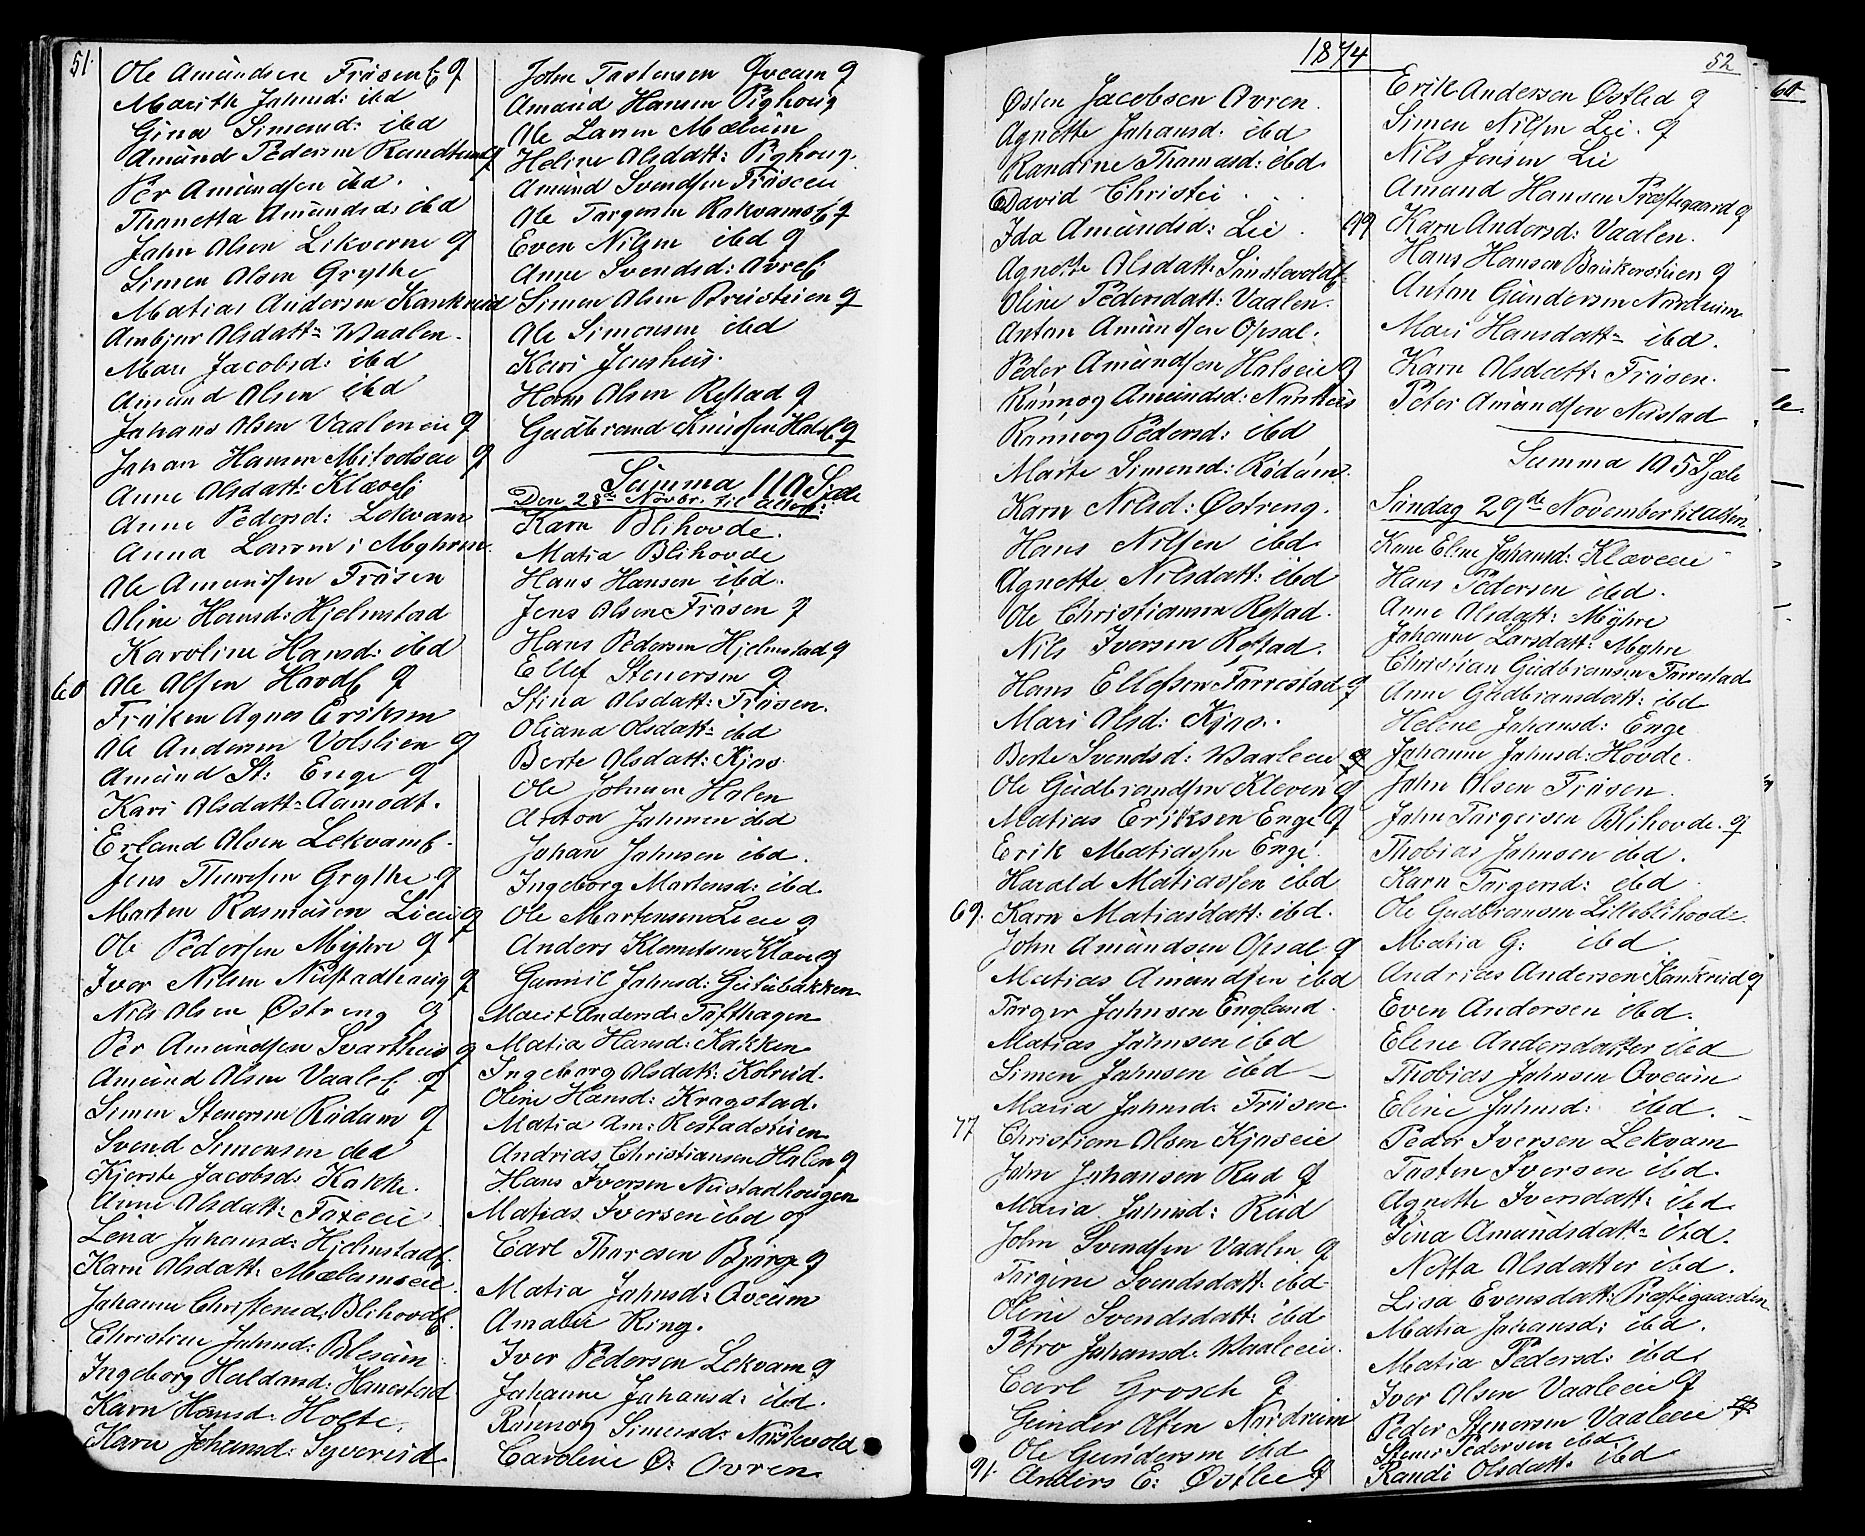 51.
Ole Amundsen Frøsenb. g
Marith Johnsd: ibd
Gina Simensd: ibd
Amund Pedersen Randklev g
Per Amundsen ibd.
Thanetta Amundsd: ibd
John Olsen Lekverne g
Simen Olsen Grythe
Matias Andersen Kankerud
Ambjør Olsdatt= Waalen.
Mari Jacobsd: ibd
Amund Olsen ibd
Johans Olsen Vaaleneie g
Johan Hansen Mitvolseie g
Anne Olsdatt: Klæveb
Anne Pedersd: Lekvam
Anna Larsen i Myhren.
Ole Amundsen Frøsen
Oline Hansd: Hjelmstad
Karoline Hansd: ibd
60 Ole Olsen Hovdb. g
Frøken Agnes Eriksen
Ole Andersen Volslien g
Amund St: Enge g
Kari Olsdatt= Aamodt.
Erland Olsen Lekvamb.
Jens Thoresen Grythe g
Marten Rasmusen Lieeie g
Ole Pedersen Myhre g
Iver Nilsen Nustadhaug g
Nils Olsen Østreng g
Per Amundsen Svartheis g
Amund Olsen Vaaleb. g
Simen Stenersen Rudam g
Svend Simensen ibd
Kjerste Jacobsd: Kakke.
Anne Olsdatt:
Lena Johansd: Hjelmstadb.
Karn Olsdatt: Mælumseie
Johanne Christensd: Blihovdb.
Christine Johnsd: Blesum
Ingeborg Haldansd: Hanestad
Karn Hansd: Holte.
Karn Johansd: Syverud
John Tostensen Øveum g
Amund Hansen Pighoug
Ole Larsen Mælum
Heline Olsdatt: Pighoug.
Amund Svendsen Frøseeie
Ole Torgersen Rakvamsb g
Even Nilsen ibd g
Anne Svendsd: Øvreb
Simen Olsen Breistien g
Ole Simensen ibd
Kari Jenshus.
Hans Olsen Restad g
Gudbrand Knudsen Hol g
Summa 119 Sjæle
Den 28de Novbr. til Alters:
Karn Blihovde.
Matia Blihovde
Hans Hansen ibd.
Jens Olsen Frøsen g
Hans Pedersen Hjelmstad g
Ellef Stenersen g
Stina Olsdatt: Frøsen.
Oliana Olsdatt= ibd
Berte Olsdatt: Kjos.
Ole Johnsen Holen
Anton Johnsen ibd
Johan Johnsen ibd.
Ingeborg Martensd: ibd
Ole Martensen Lieeie g
Anders Klemetsen g
Gunnil Johnsd: Gutubakken
Marit Andersd: Tofthagen
Matia Hansd: Kakken
Ingeborg Olsdatt: Kolrud.
Oline Hansd: Kragstad.
Matia Am: Restadstuen
Andrias Christiansen Holen g
Hans Iversen Nustadhougen
Matias Iversen ibd g
Carl Thoresen Bjørge g
Matia Johnsd: Øveum
Amalie Ring.
Iver Pedersen Lekvam g
Johanne Johansd: ibd.
Rønnog Simensd: Nørstevold
Caroline Ø: Øvren
1874
Østen Jacobsen Øvren.
Agnette Johansd. ibd
Randine Thomasd: ibd.
David Christei . .
Ida Amundsd: Lie .
Agnette Olsdatt: Sønstevoldb.
Oline Pedersdatt: Vaalen.
Anton Amundsen Opsal.
Peder Amundsen Holseie g
Rønnog Amundsd: Nørsteeie
Rønnog Pedersd: ibd
Marte Simensd: Rudam.
Karn Nilsd: Østreng.
Hans Nilsen ibd.
Agnette Nilsdatt: ibd
Ole Christiansen Restad.
Nils Iversen Restad.
Hans Ellefsen Forrestad g
Mari Olsd: Kjos.
Berte Svendsd: Waaleeie
Ole Gudbrandsen Kleven g
Matias Eriksen Enge g
Erik Matiassen Enge.
Harald Matiassen ibd
69. Karn Matiasdatt: ibd.
John Amundsen Opsal g
Matias Amundsen ibd
Torger Johnsen England.
Matias Johnsen ibd
Simen Johnsen ibd –
Maria Johnsd: Frøsen
77 Christian Olsen Kjoseie
John Johansen Rud g
Maria Johnsd: Rud
John Svendsen Vaalen g
Torgine Svendsdatt: ibd
Oline Svendsdatt: ibd
Petro Johansd: Waaleeie.
Carl Grosch g
Gunder Olsen Nordrum
Ole Gundersen ibd
91. Anders E: Østlie g
52
Erik Andersen Østlid g
Simen Nilsen Lie. g
Nils Jensen Lie
Amund Hansen Præstegaard g
99 Karn Andersd: Vaalen.
Hans Hansen Brukerstuen g
Anton Gundersen Nordrum
Mari Hansdatt= ibd.
Karn Olsdatt: Frøsen.
Peter Amundsen Nustad
Summa 105 Sjæle
Søndag 29de November til Alters
Karn Eline Johansd: Klæveeie
Hans Pedersen ibd.
Anne Olsdatt: Myhre
Johanne Larsdatt: Myhre
Christian Gudbransen Forrestad
Anne Gudbransdatt: ibd
Helene Johansd: Enge
Johanne Johnsd: Hovde.
John Olsen Frøsen.
John Torgersen Blihovde. g
Thobias Johnsen ibd.
Karn Torgersd: ibd
Ole Gudbransen Lilleblihovde.
Matia G: ibd
Andrias Andersen Kankrud g
Even Andersen ibd.
Eline Andersdatter ibd
Thobias Johnsen Øveum
Eline Johnsd: ibd. –
Peder Iversen Lekvam
Tosten Iversen ibd.
Agnethe Iversdatt: ibd
Sina Amundsdatt= ibd.
Netta Olsdatter ibd.
Lisa Evensdatt: Præstegaarden
Matia Johansd: ibd.
Matia Pedersd: ibd.
Iver Olsen Vaaleeie g
Peder Stenersen Vaaleeie
Stener Pedersen ibd
Randi Olsdatt: ibd
60